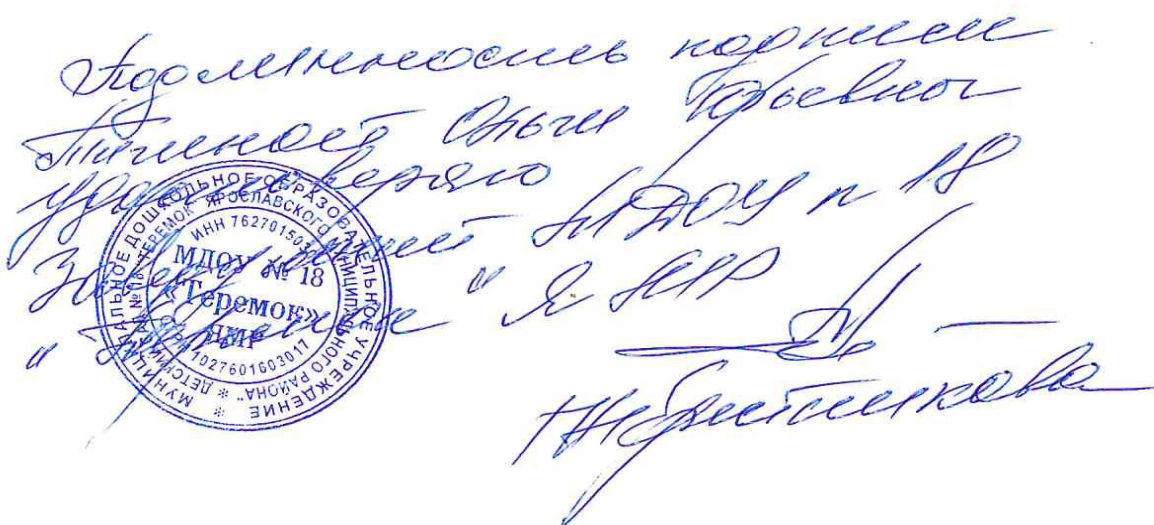 Подлинность подписи
Ольги Юрьевны
удостоверяю
Заведующий МДОУ № 18
"Теремок" ЯМР
МУНИЦИПАЛЬНОЕ ДОШКОЛЬНОЕ ОБРАЗОВАТЕЛЬНОЕ УЧРЕЖДЕНИЕ
ДЕТСКИЙ САД № 18 "ТЕРЕМОК" ЯРОСЛАВСКОГО МУНИЦИПАЛЬНОГО РАЙОНА"
ИНН 762701503
МДОУ № 18
«Теремок»
ЯМР
1027601603017